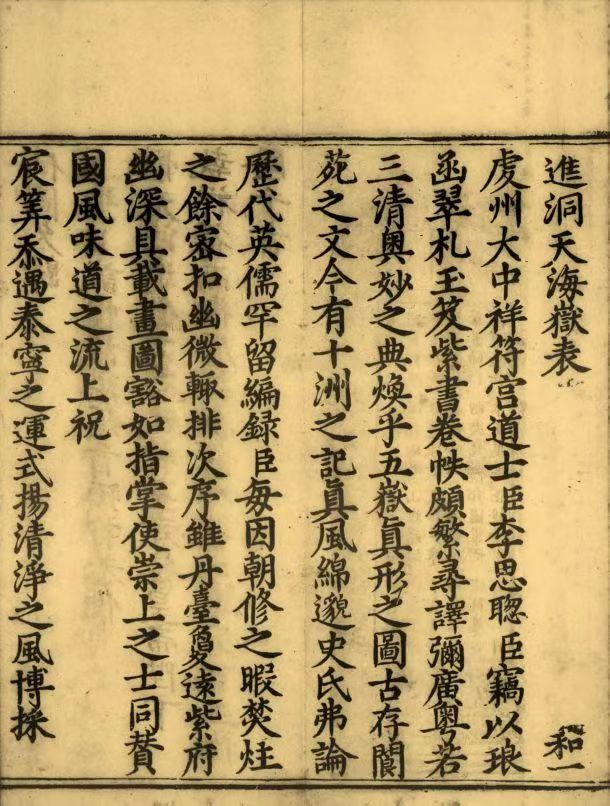 進洞天海嶽表
和一
虔州大中祥符宫道士臣李思聦臣竊以琅
函翠札玉笈紫書卷帙頗繁尋譯彌廣粤若
三清奥妙之典煥乎五嶽真形之圖古存閬
苑之文今有十洲之記真風綿邈史氏弗論
歷代英儒罕留編録臣每因朝修之暇焚炷
之餘宻扣幽微輙排次序雖丹臺敻遠紫府
幽深具載畫圖豁如指掌使崇上之士同賛
國風味道之流上祝
宸筭忝遇泰寧之運式揚清淨之風博採